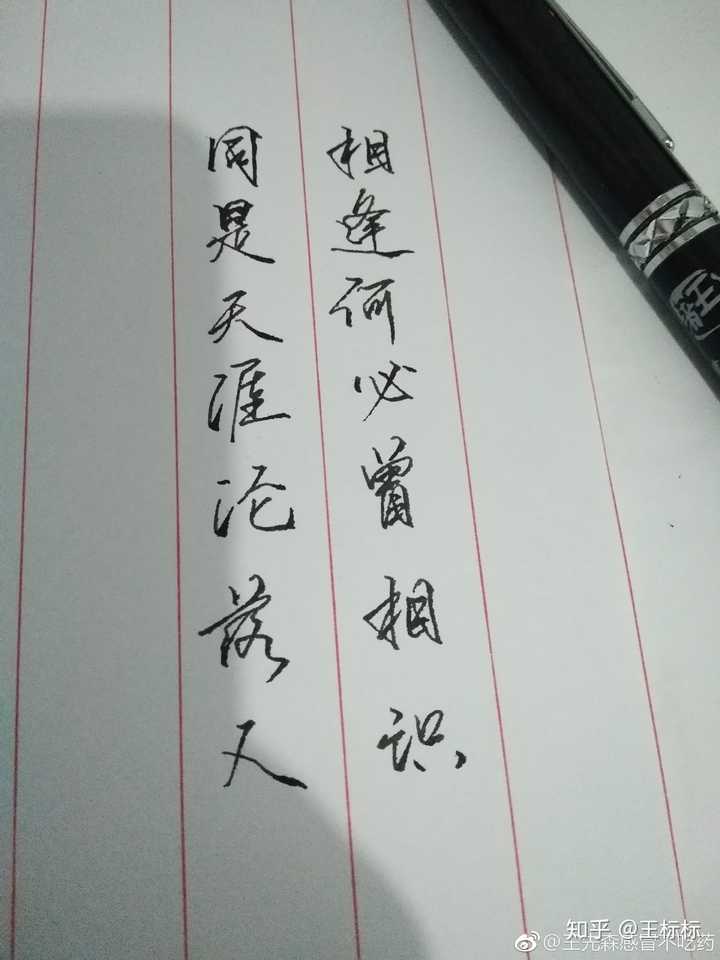 相逢何必曾相识
同是天涯沦落人
知乎 @王标标
@王先森感冒不吃药